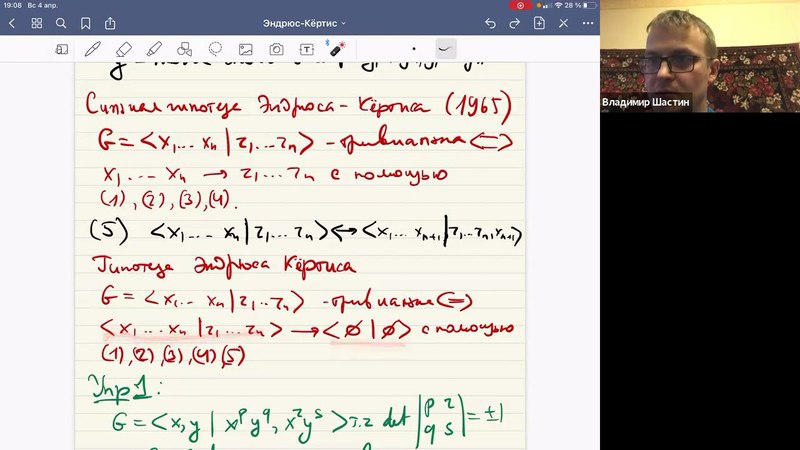 19:08 Вс 4 апр.
28 %
Эндрюс-Кёртис
Владимир Шастин
Сильная гипотеза Эндрюса-Кёртиса (1965)
G = <x₁...xₙ | r₁...rₙ> - тривиальна <=>
x₁...xₙ → r₁...rₙ с помощью
(1), (2), (3), (4).
(5) <x₁...xₙ | r₁...rₙ> ↔ <x₁...xₙ₊₁ | r₁...rₙ, xₙ₊₁>
Гипотеза Эндрюса Кёртиса
G = <x₁...xₙ | r₁...rₙ> - тривиальна <=>
<x₁...xₙ | r₁...rₙ> → <∅ | ∅> с помощью
(1), (2), (3), (4), (5)
Упр 1:
G = <x, y | xᵖ y^q, xʳ yˢ> т.ч. det |p r| = ±1
|q s|